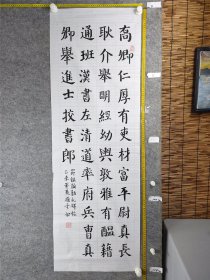 高卿仁夙有吏材富平尉真長
耿介舉明經幼輿敦雅有醞藉
通班漢書左清道率府兵曹真
卿舉進士挍書郎